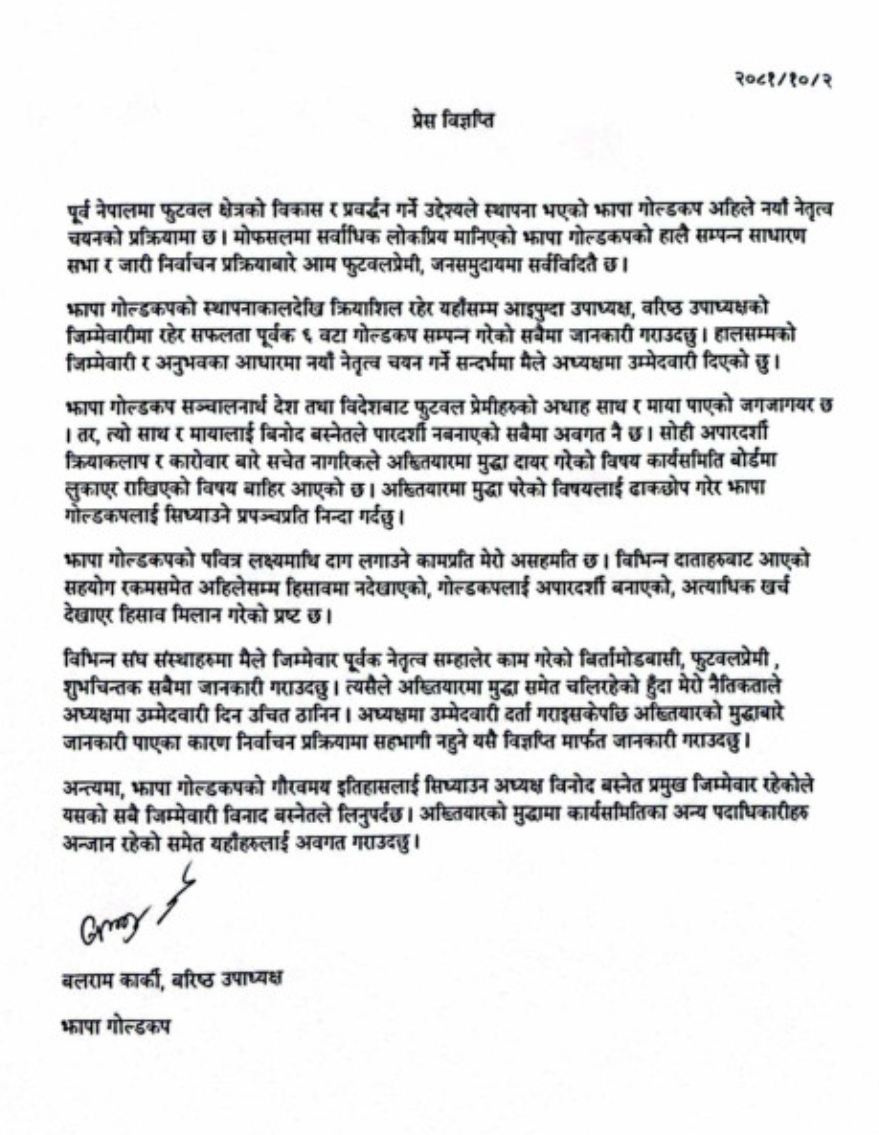 २०८१/१०/२
प्रेस विज्ञप्ति
पूर्व नेपालमा फुटवल क्षेत्रको विकास र प्रवर्द्धन गर्ने उद्देश्यले स्थापना भएको झापा गोल्डकप अहिले नयाँ नेतृत्व
चयनको प्रक्रियामा छ । मोफसलमा सर्वाधिक लोकप्रिय मानिएको झापा गोल्डकपको हालै सम्पन्न साधारण
सभा र जारी निर्वाचन प्रक्रियाबारे आम फुटवलप्रेमी, जनसमुदायमा सर्वविदितै छ ।
झापा गोल्डकपको स्थापनाकालदेखि क्रियाशिल रहेर यहाँसम्म आइपुग्दा उपाध्यक्ष, वरिष्ठ उपाध्यक्षको
जिम्मेवारीमा रहेर सफलता पूर्वक ६ वटा गोल्डकप सम्पन्न गरेको सबैमा जानकारी गराउदछु । हालसम्मको
जिम्मेवारी र अनुभवका आधारमा नयाँ नेतृत्व चयन गर्ने सन्दर्भमा मैले अध्यक्षमा उम्मेदवारी दिएको छु ।
झापा गोल्डकप सञ्चालनार्थ देश तथा विदेशबाट फुटवल प्रेमीहरुको अथाह साथ र माया पाएको जगजागयर छ
। तर, त्यो साथ र मायालाई बिनोद बस्नेतले पारदर्शी नबनाएको सबैमा अवगत नै छ । सोही अपारदर्शी
क्रियाकलाप र कारोवार बारे सचेत नागरिकले अख्तियारमा मुद्धा दायर गरेको विषय कार्यसमिति बोर्डमा
लुकाएर राखिएको विषय बाहिर आएको छ । अख्तियारमा मुद्धा परेको विषयलाई ढाकछोप गरेर झापा
गोल्डकपलाई सिध्याउने प्रपञ्चप्रति निन्दा गर्दछु ।
झापा गोल्डकपको पवित्र लक्ष्यमाथि दाग लगाउने कामप्रति मेरो असहमति छ । विभिन्न दाताहरुबाट आएको
सहयोग रकमसमेत अहिलेसम्म हिसावमा नदेखाएको, गोल्डकपलाई अपारदर्शी बनाएको, अत्याधिक खर्च
देखाएर हिसाव मिलान गरेको प्रष्ट छ ।
विभिन्न संघ संस्थाहरुमा मैले जिम्मेवार पूर्वक नेतृत्व सम्हालेर काम गरेको बिर्तामोडबासी, फुटवलप्रेमी ,
शुभचिन्तक सबैमा जानकारी गराउदछु । त्यसैले अख्तियारमा मुद्धा समेत चलिरहेको हुँदा मेरो नैतिकताले
अध्यक्षमा उम्मेदवारी दिन उचित ठानिन । अध्यक्षमा उम्मेदवारी दर्ता गराइसकेपछि अख्तियारको मुद्धाबारे
जानकारी पाएका कारण निर्वाचन प्रक्रियामा सहभागी नहुने यसै विज्ञप्ति मार्फत जानकारी गराउदछु ।
अन्त्यमा, झापा गोल्डकपको गौरवमय इतिहासलाई सिध्याउन अध्यक्ष विनोद बस्नेत प्रमुख जिम्मेवार रहेकोले
यसको सबै जिम्मेवारी विनाद बस्नेतले लिनुपर्दछ । अख्तियारको मुद्धामा कार्यसमितिका अन्य पदाधिकारीहरु
अन्जान रहेको समेत यहाँहरुलाई अवगत गराउदछु ।
वलराम कार्की, बरिष्ठ उपाध्यक्ष
झापा गोल्डकप